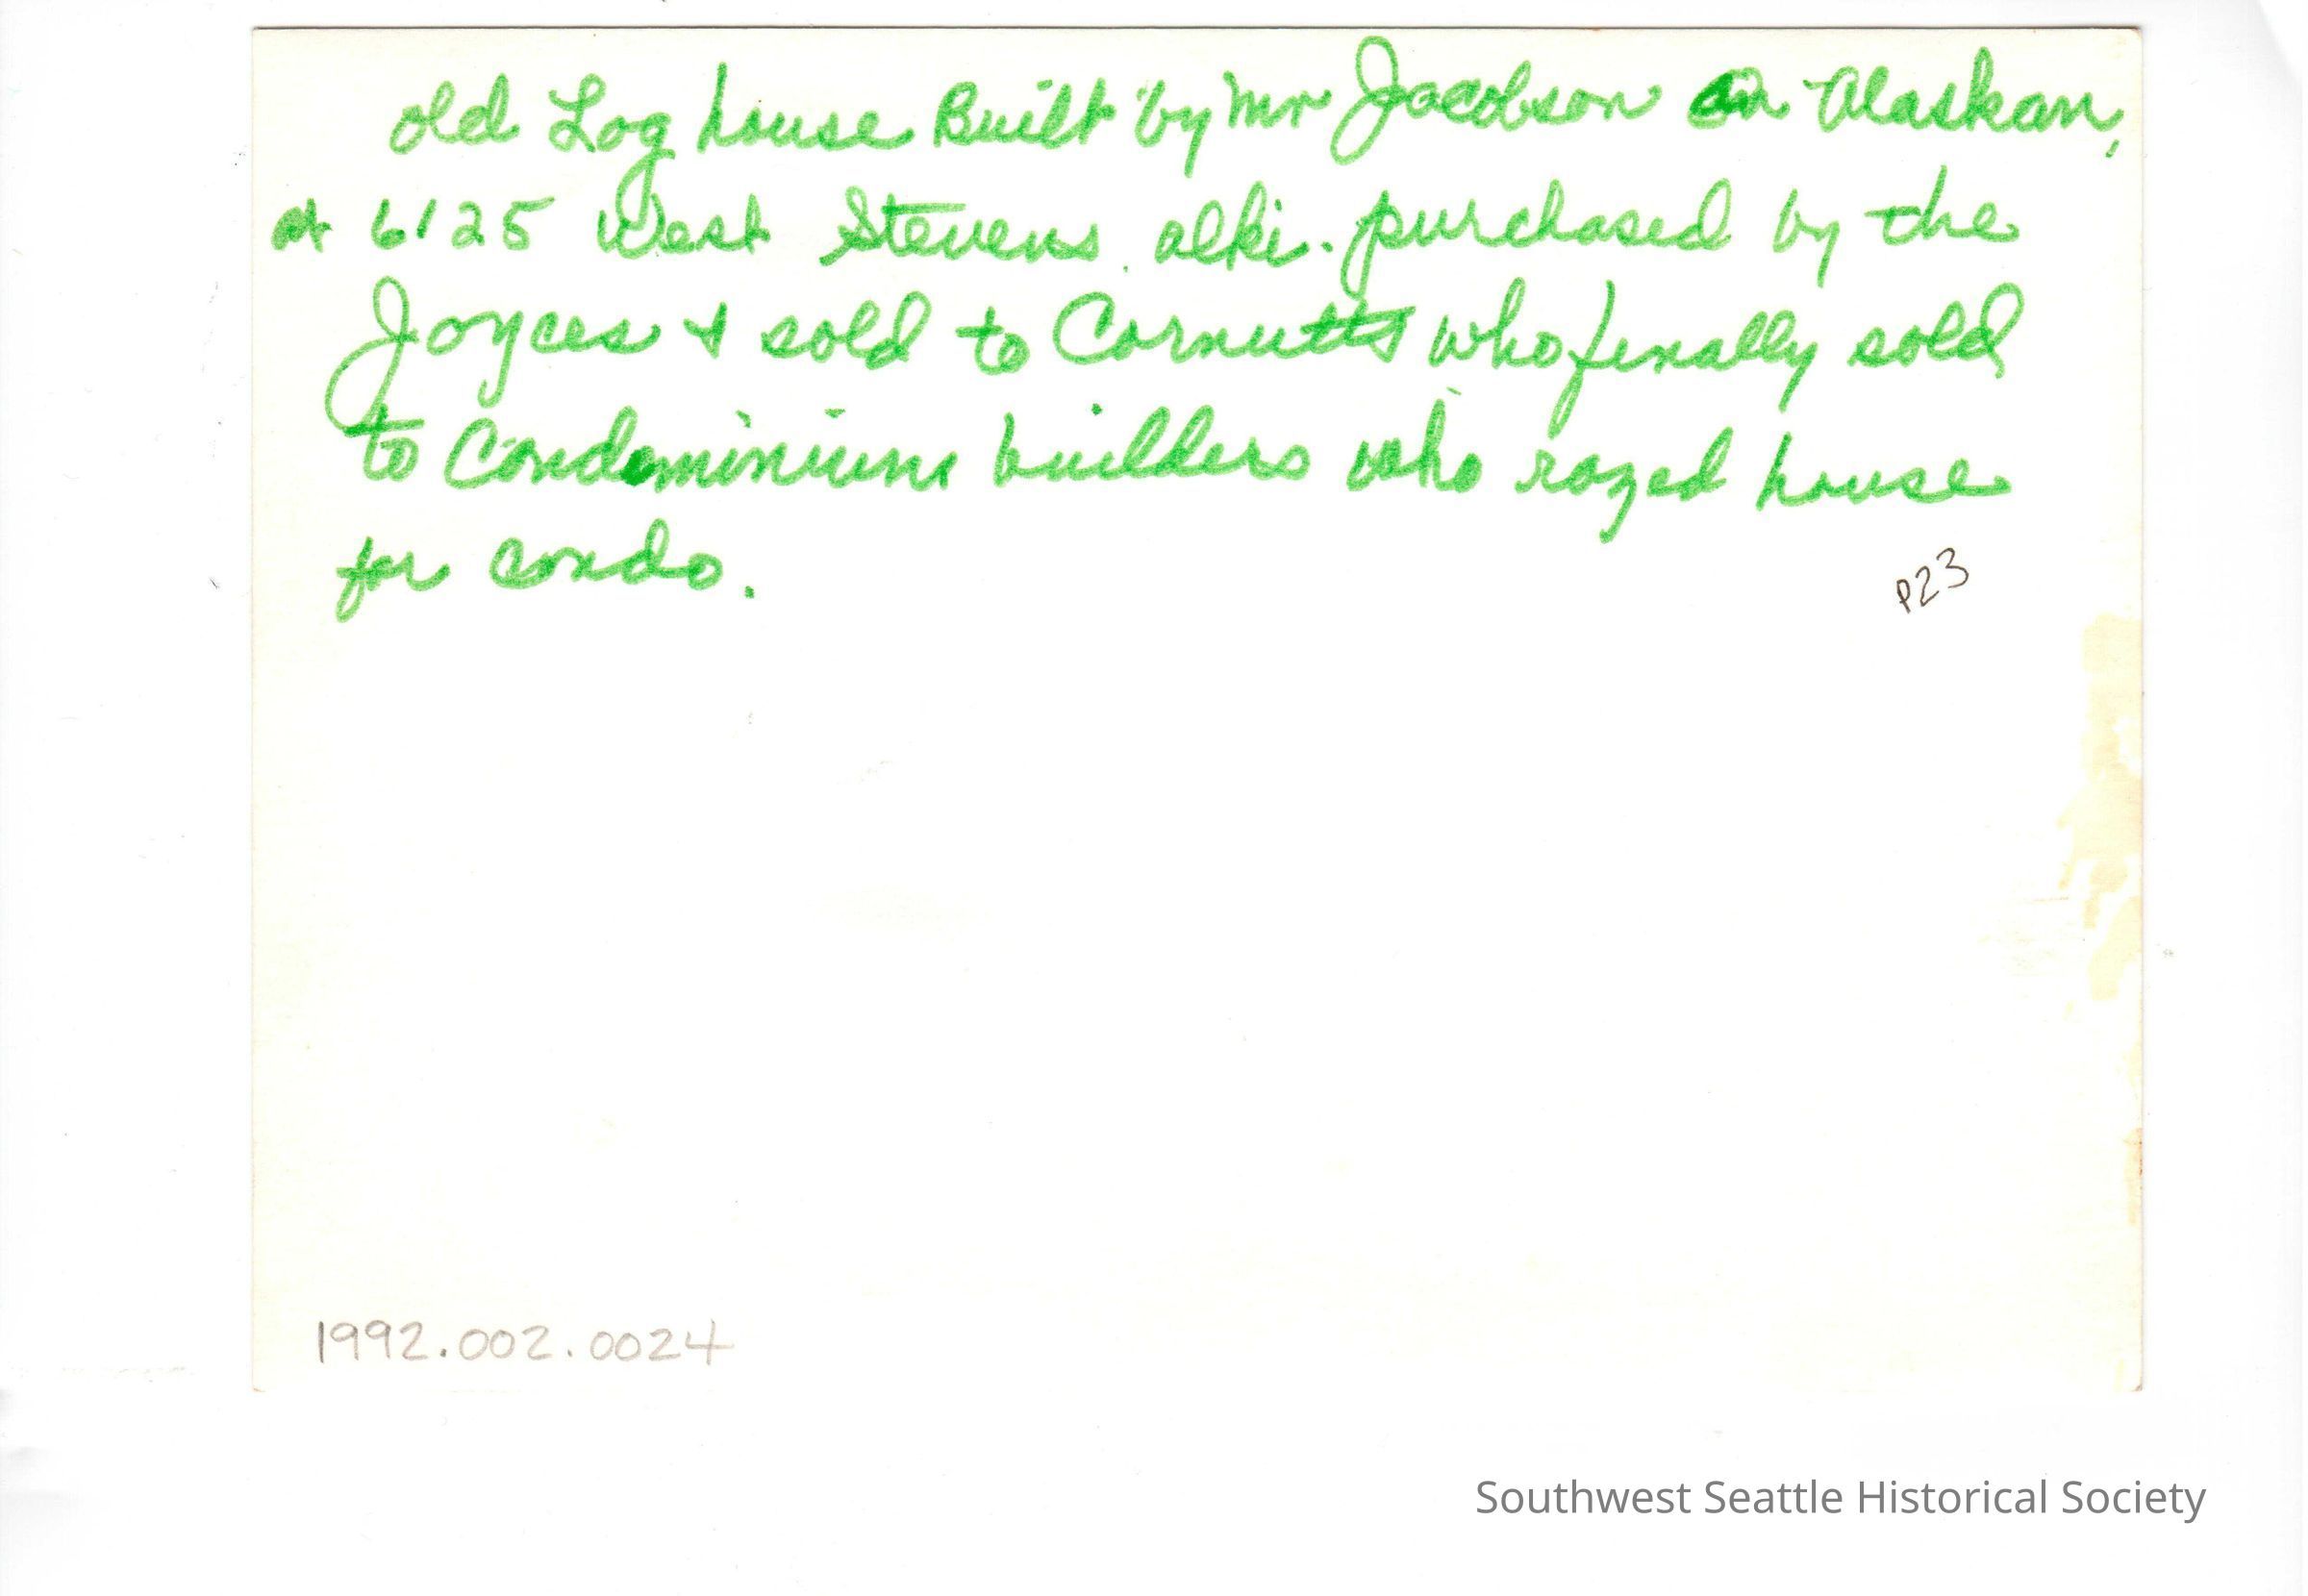 old Log house Built by Mr Jacobson an Alaskan,
at 6125 West Stevens. alki. purchased by the
Joyces & sold to Cornutts who finally sold
to Condominium builders who razed house
for condo.
P23
1992.002.0024
Southwest Seattle Historical Society